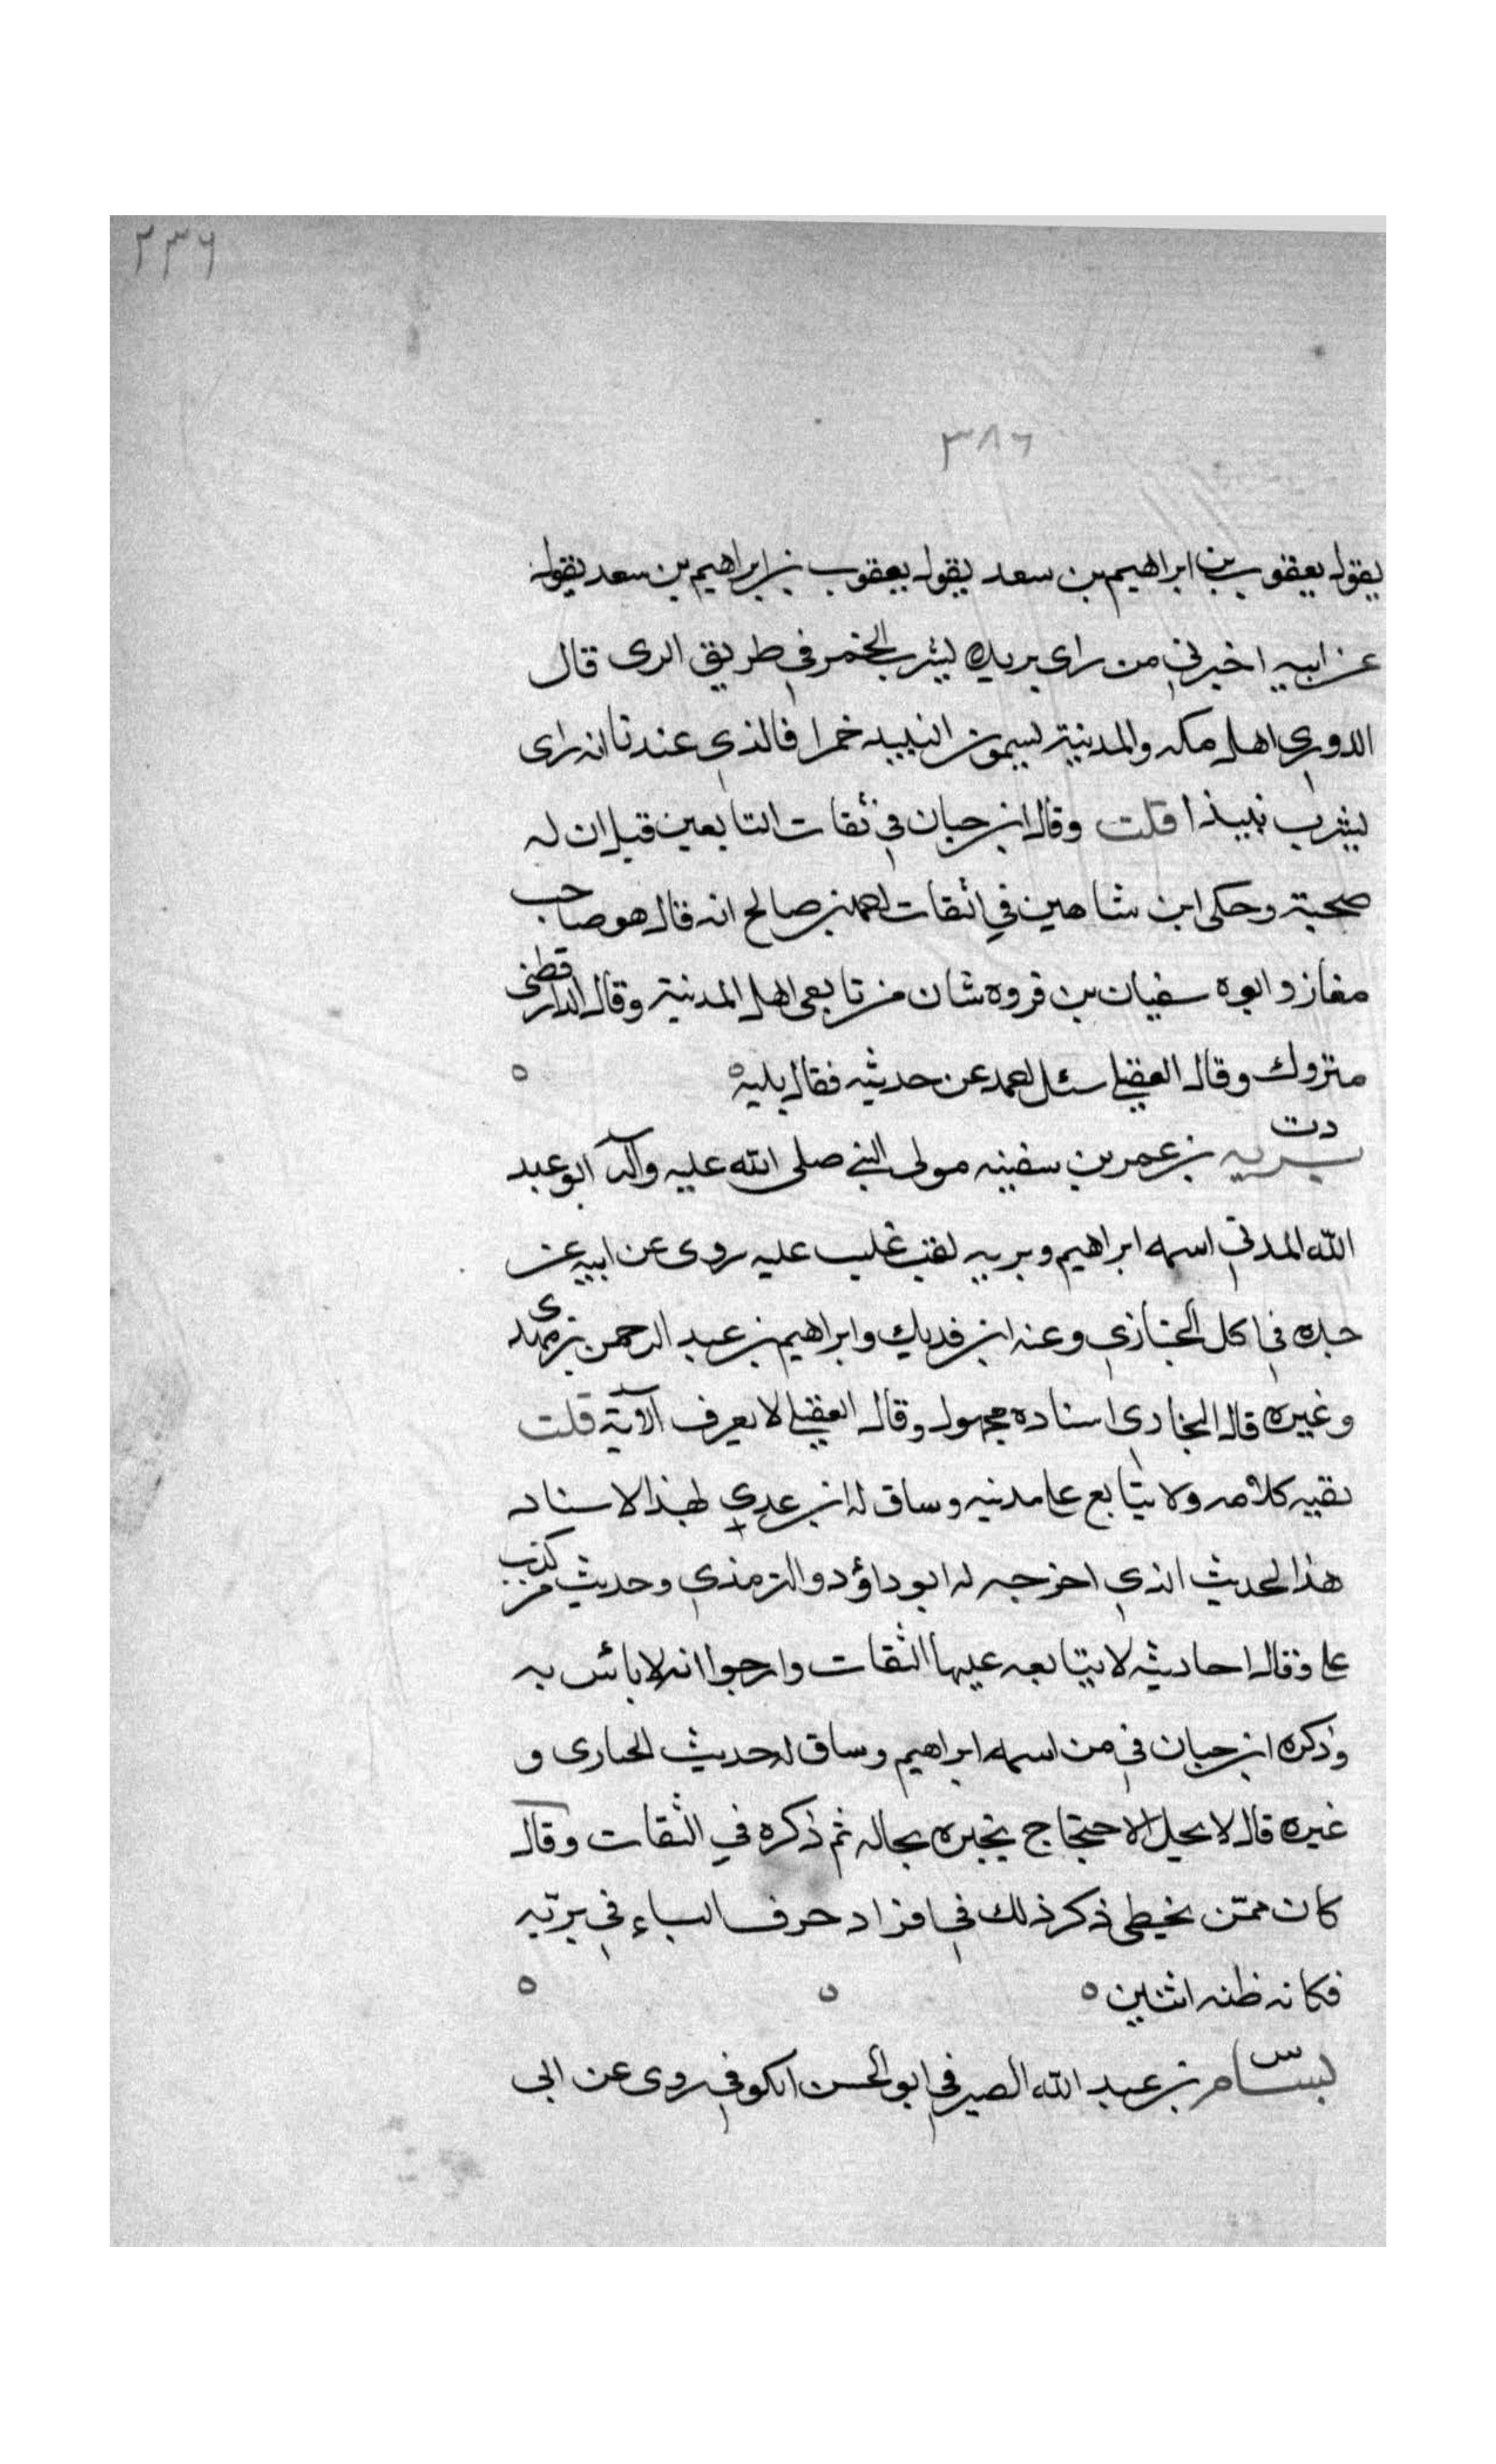 ٣٣٦
٣٨٦
يقول يعقوب بن ابراهيم بن سعد يقول يعقوب بن ابراهيم بن سعد يقول
عن ابيه اخبرني من راى بريدة يشرب الخمر في طريق الرى قال
الدوري اهل مكه والمدينة يسمون النبيد خمرا فالذي عندنا انه راى
يشرب نبيذا قلت وقال ابن حبان في ثقات التابعين قيل ان له
صحبة وحكى ابن شاهين في الثقات احمد بن صالح انه قال هو صاحب
مغاز وابوه سفيان بن فروه شان من تابعى اهل المدينة وقال الدارقطني
متروك وقال العقيلي سئل احمد عن حديثه فقال بليه
دت
بريه بن عمر بن سفينه مولى النبي صلى الله عليه وآله ابو عبد
الله المدني اسمه ابراهيم وبريه لقب غلب عليه روى عن ابيه عن
جده في اكل الحبازي وعنه ابن فديك وابراهيم بن عبد الرحمن بن مهدي
وغيره قال البخاري اسناده مجهول وقال العقيلي لا يعرف الآية قلت
بقيه كلامه ولا يتابع على مدنيه وساق له ابن عدي بهذا الاسناد
هذا الحديث الذي اخرجه له ابو داؤد والترمذي وحديث من كذب
على وقال احاديثه لا يتابعه عليها الثقات وارجوا انه لا بائس به
وذكره ابن حبان في من اسمه ابراهيم وساق له حديث الحبارى و
غيره قال لا يحيل الاحتجاج بخبره بحاله ثم ذكره في الثقات وقال
كان ممن يخطى ذكر ذلك في افراد حرف الباء في بريه
فكانه ظنه اثنين
س
بسام بن عبد الله الصيرفي ابو الحسن الكوفي روى عن ابى